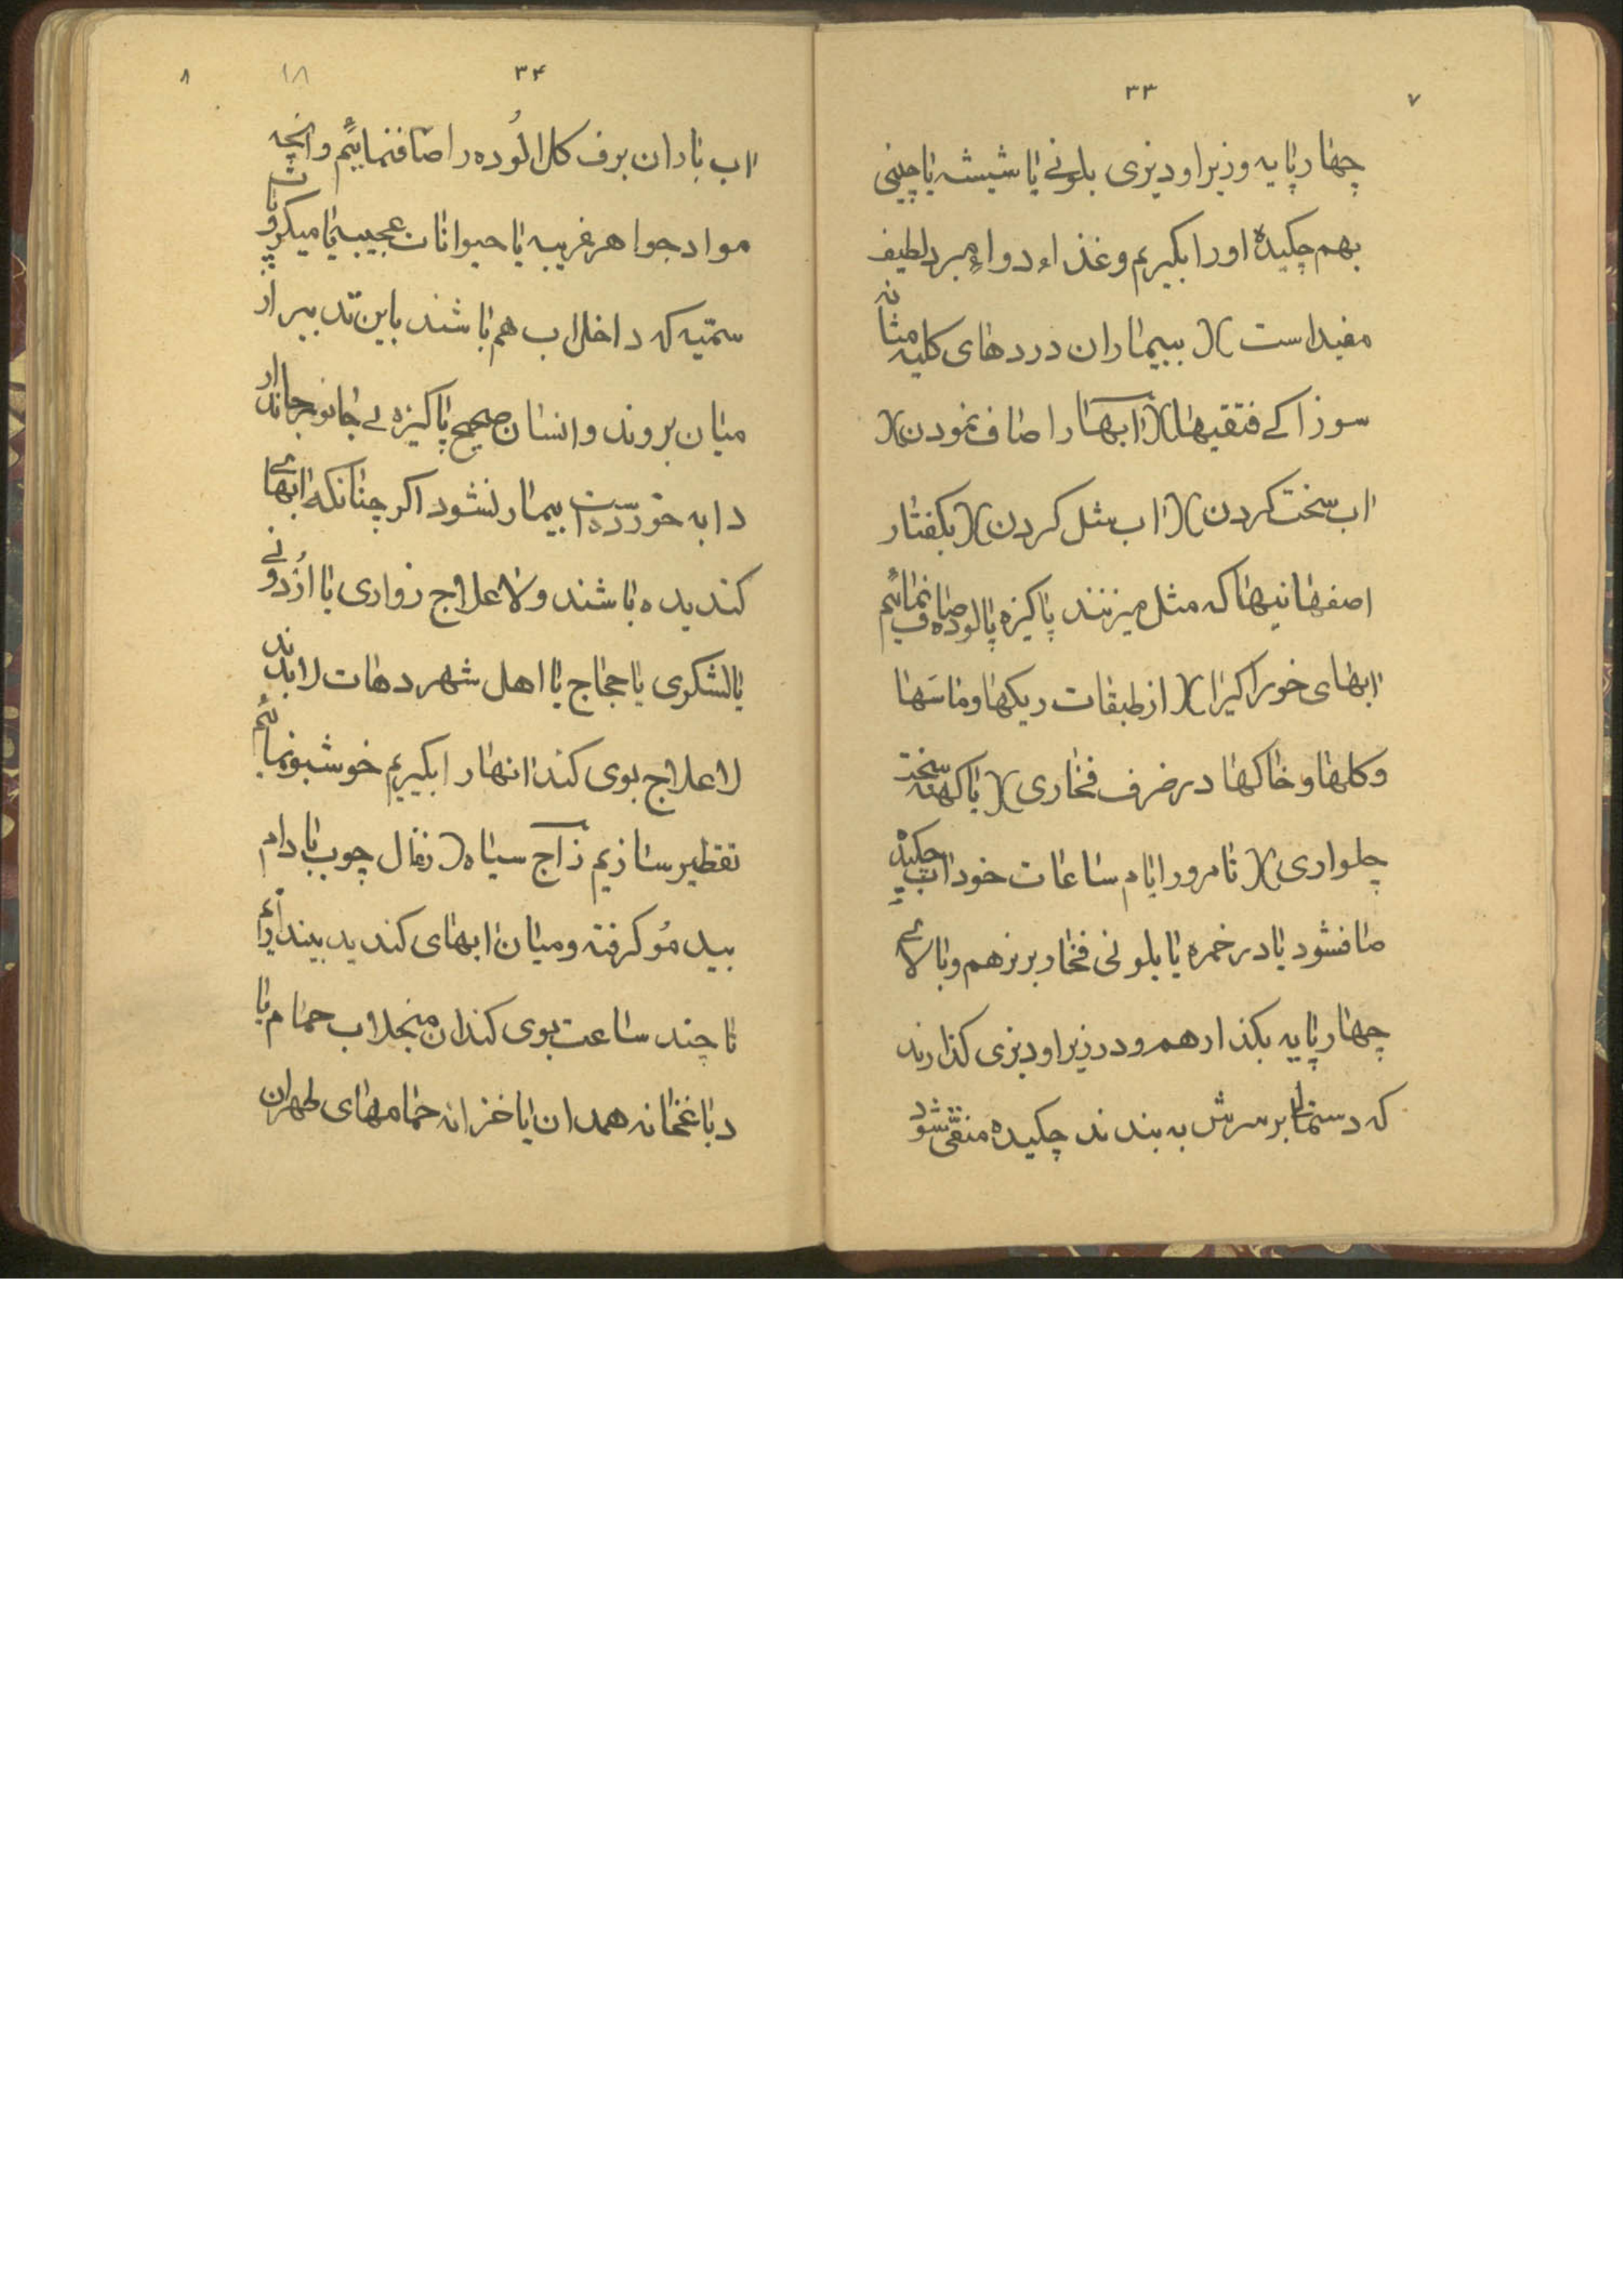 ۷
۳۳
چهار پایه و زیر او دیزی بلونی یا شیشه یا چینی
بهم چکیدهٔ او را بکیریم و غذاء دواء مبرد لطیف
مفید است )( بیماران دردهای کلیه مثانه
سوزاکی فتقیها )( آبها را صاف نمودن )(
اب سخت کردن )( اب مثل کردن )( بکفتار
اصفهانیها که مثل میزنند پاکیزه پالوده صاف نمائیم
ابهای خوراکیرا )( از طبقات ریکها و ماسَها
و کلها و خاکها در ضرف فخاری )( با کهنه سخت
چلواری )( تا مرور ایام ساعات خود اب چکیدهٔ
صافشود یا در خمره یا بلونی فخار بریزهم و بالای
چهار پایه بکذارهم و در زیر او دیزی کذارند
که دستمال بر سرش به بندند چکیده منقی شود
۳۴
۱۸
۸
اب باران برف کل الُوده را صافنمائیم و انچه
مواد جواهر غریبه یا حیوانات عجیبه یا میکروبات
سمّیه که داخل اب هم باشند باین تدبیر از
میان بروند و انسان صحیح پاکیزه بی جانور جاندار
دابه خورده است بیمار نشود اکر چنانکه ابهای
کندیده باشند و لاعلاج زواری یا اُردوئی
یا لشکری یا حجاج یا اهل شهر دهات لابدند
لاعلاج بوی کند انها را بکیریم خوشبو نمائیم
تقطیر سازیم زاج سیاه )( زغال چوب بادام
بید مُو کرفته و میان ابهای کندیده بیندازیم
تا چند ساعت بوی کند ان منجلاب حمام یا
دباغخانه همدان یا خزانه حمامهای طهران